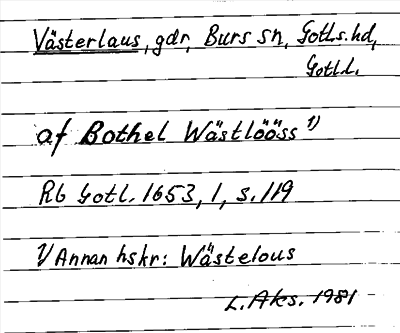 Västerlaus, gdr, Burs sn, Gotl.s.hd,
Gotl.l.
af Bothel Wästlööss 1)
Rb Gotl. 1653, 1, s. 119
1/ Annan hskr: Wästelous
L. Aks. 1981